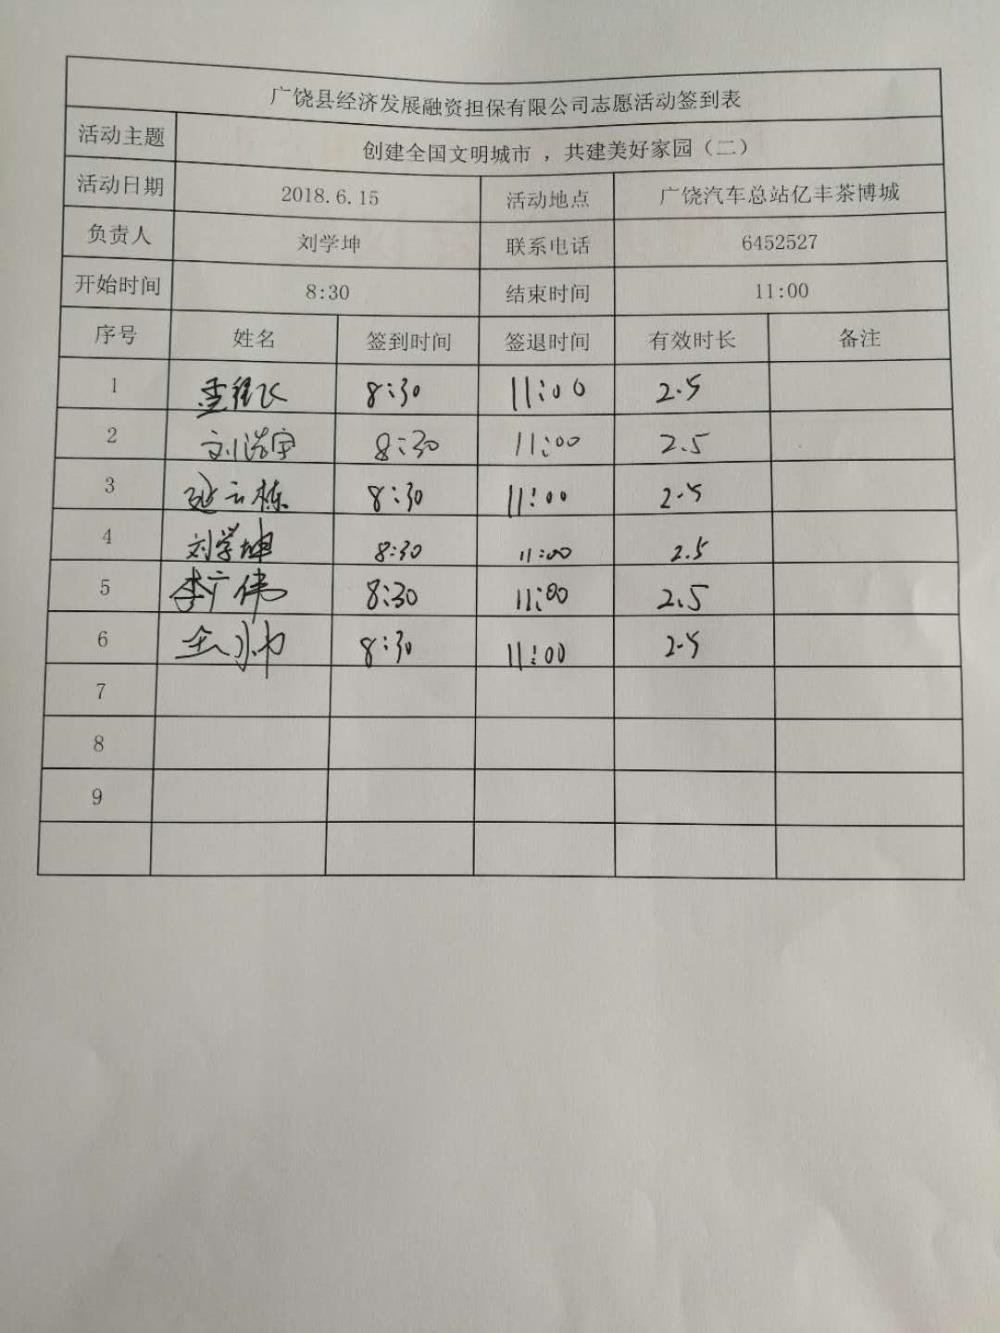 广饶县经济发展融资担保有限公司志愿活动签到表
活动主题 创建全国文明城市，共建美好家园（二）
活动日期 2018.6.15 活动地点 广饶汽车总站亿丰茶博城
负责人 刘学坤 联系电话 6452527
开始时间 8:30 结束时间 11:00
序号 姓名 签到时间 签退时间 有效时长 备注
1 8:30 11:00 2.5
2 刘浩宇 8:30 11:00 2.5
3 延云栋 8:30 11:00 2.5
4 刘学坤 8:30 11:00 2.5
5 李广伟 8:30 11:00 2.5
6 8:30 11:00 2.5
7
8
9